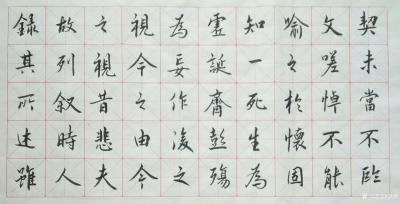 契未當不臨
文嗟悼不能
喻之於懷固
知一死生為
虛誕齊彭殤
為妄作後之
視今之由今
之視昔悲夫
故列叙時人
錄其所述雖